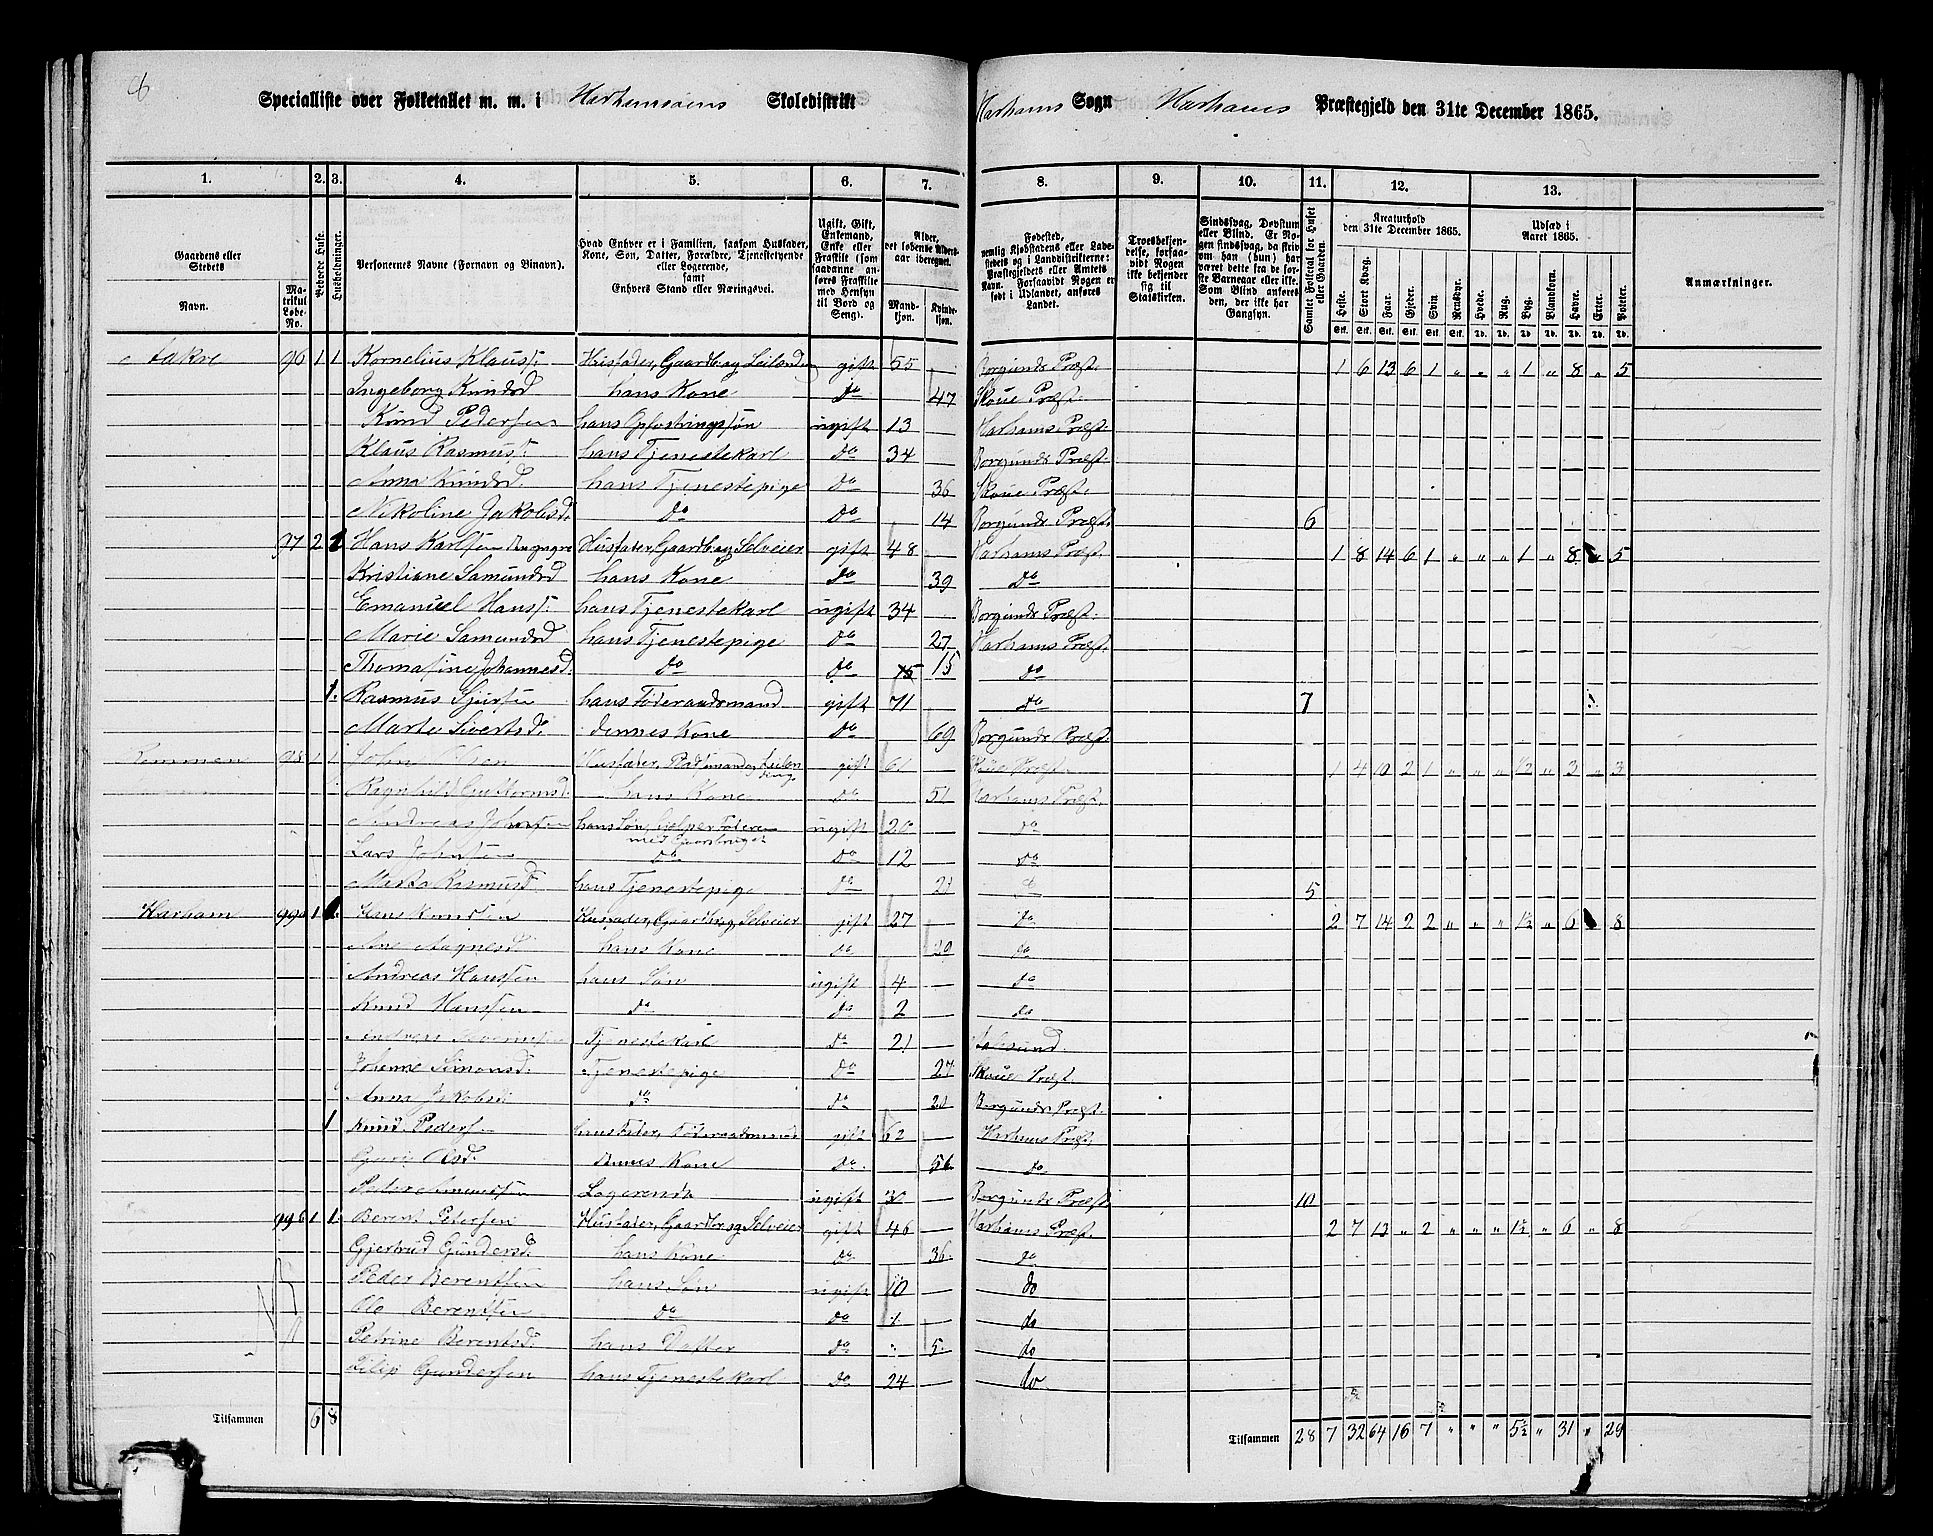 Specialliste over Folketallet m. m. i Harhamsøens Skoledistrikt Harhams Sogn Harhams Præstegjeld den 31te December 1865.
1. 2. 3. 4. 5. 6. 7. 8. 9. 10. 11. 12. 13.
Gaardens eller Stedets Navn. Matrikul Løbe-No. Beboede Huse. Husholdninger. Personernes Navne (Fornavn og Binavn). Hvad Enhver er i Familien, saasom Husfader, Kone, Søn, Datter, Forældre, Tjenestetyende eller Logerende, samt Enhvers Stand eller Næringsvei. Ugift, Gift, Enkemand, Enke eller Fraskilt (som saadanne anføres Fraskilte med Hensyn til Bord og Seng). Alder, det løbende Aldersaar iberegnet. Mandkjøn. Kvindekjøn. Fødested, nemlig Kjøbstadens eller Ladestedets og i Landdistrikterne: Præstegjeldets eller Amtets Navn. Forsaavidt Nogen er født i Udlandet, anføres Landet. Troesbekjendelse, forsaavidt Nogen ikke bekjender sig til Statskirken. Sindssvag, Døvstum eller Blind. Er Nogen sindssvag, da skrives om han (hun) har været dette fra de første Barneaar eller ikke. Som Blind anføres den, der ikke har Gangsyn. Samlet Folketal for Huset eller Gaarden. Kreaturhold den 31te December 1865. Heste. Stort Kvæg. Faar. Gjeder. Svin. Rensdyr. Udsæd i Aaret 1865. Hvede. Rug. Byg. Blandkorn. Havre. Erter. Poteter. Anmærkninger.
Aakre 96 1 1 Kornelius Klaus. Husfader, Gaardb. og Leilending gift 55 Borgunds Præst. 1 6 13 6 1 " " " 1 " 8 " 5
Ingeborg Knudsd hans Kone do 47 Skoue Præst.
Knud Pedersen hans Opfostringssøn ugift 13 Harhams Præst
Klaus Rasmus. hans Tjenestekarl do 34 Borgunds Præst.
Anna Knudsd. hans Tjenestepige do 36 Skoue Præst.
Nikoline Jakobsd. do do 14 Borgunds Præst. 6
97 2 1 Hans Karlsen Husfader, Gaardb. og Selveier gift 48 Harhams Præst. 1 8 14 6 1 " " " 1 " 8 " 5
Kristiane Samundsd hans Kone do 39 do
Emanuel Hans. hans Tjenestekarl ugift 34 Borgunds Præst.
Marie Samundsd hans Tjenestepige do 27 Harhams Præst.
Thomasine Johannesd. do do 15 15 do
1. Rasmus Sjursen hans Føderaadsmand gift 71 do 7
Marte Sivertsd. dennes Kone do 69 Borgunds Præst.
Rommen 98 1 1 John Olsen Husfader, Leilending gift 61 Skoue Præst. 1 4 10 2 1 " " " 1/2 " 3 " 3
Ragnhild Guttormsd. hans Kone do 51 Harhams Præst.
Andreas Johnsen hans Søn, hjelper Faderen med Gaarsbruget ugift 20 do
Lars Johnsen do do 12 do
Marta Rasmusd. hans Tjenestepige do 21 do 5
Harham 99a 1 1. Hans Knudsen Husfader, Gaardbr. og Selveier gift 27 do 2 7 14 2 2 " " " 1 1/2 " 6 8
Ane Magnesd. hans Kone do 29 do
Andreas Hanssen hans Søn ugift 4 do
Knud Hanssen do do 2 do
Andreas Tjenestekarl do 21 Aalesund.
Johanne Simonsd. Tjenestepige do 27 Skoue Præst.
Anna Jakobsd. do do 21 Borgunds Præst.
1 Knud Peders. hans Fader, Føderaadsmand gift 62 Harhams Præst.
Guri Olsd. dennes Kone do. 56 do
Peder Logerende ugift 30 Borgunds Præst. 10
99b 1 1. Berent Petersen Husfader, Gaardbr. og Selveier gift 46 Harhams Præst. 2 7 13 " 2 " " " 1 1/2 " 6 " 8
Gjertrud Gundersd. hans Kone do 36. do
Peder Berentsen hans Søn ugift 10 do
Ole Berentsen do do 1 do
Petrine Berentsd. hans Datter do 5. do
Filip Gundersen hans Tjenestekarl do 24 do
Tilsammen 6 8 Tilsammen 28 7 32 64 16 7 " " " 5 1/2 " 31 " 29